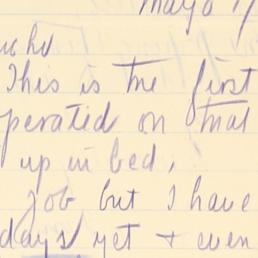 Mayo 17
This is the first
perated on that
up in bed,
job but I have
days yet + even